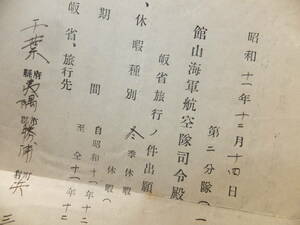 昭和十一年十二月十四日
第二分隊(
館山海軍航空隊司令殿
皈省旅行ノ件出願
、休暇種別 冬季休暇
期間 自昭和十一年十二
至仝十二年
皈省、旅行先
千葉縣夷隅郡勝浦町